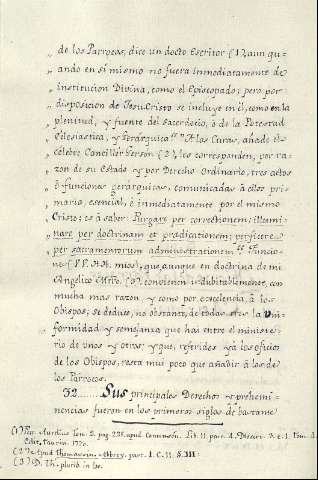 „ de los Parrocas, dice un docto Escritor (1), aun qu-
„ ando en sí mismo no fuera inmediatamente de
„ institucion Divina, como el Episcopado; pero por
„ disposicion de Jesu-Cristo se incluye en él, como en la
„ plenitud, y fuente del Sacerdocio, ó de la Potestad
„ Eclesiastica, y Gerárquica" "A los Curas, añade el
„ célebre Canciller Gersón (2), les corresponden, por ra-
„ zon de su Estado y por Derecho Ordinario, tres actos
„ ó funciones gerárquicas, comunicadas á ellos pri-
„ maria, esencial, é inmediatamente por el mismo
„ Cristo: es á saber: Purgare per correctionem; illumi-
„ nare per doctrinam et prædicationem; perficere
„ per sacramentorum administrationem" Funcio-
nes (PP. AA. mios), que, aunque en doctrina de mi
Angélico Mtro. (3) convienen indubitablemente, con
mucha mas razon, y como por excelencia, á los
Obispos, se deduce, no obstante, de todas tres la uni-
formidad y semejanza que hai entre el ministe-
rio de unos y otros; y que, referidos ya los oficios
de los Obispos, resta mui poco que añadir á los de
los Párrocos.
32....... Sus principales Derechos y prehemi-
nencias fueron en los primeros siglos de bastante
(1) Aurelius Tom. 2. pag. 228. apud
Edit. Taurin. 1770.
(2) Apud Thomassin.
(3) D. Th.